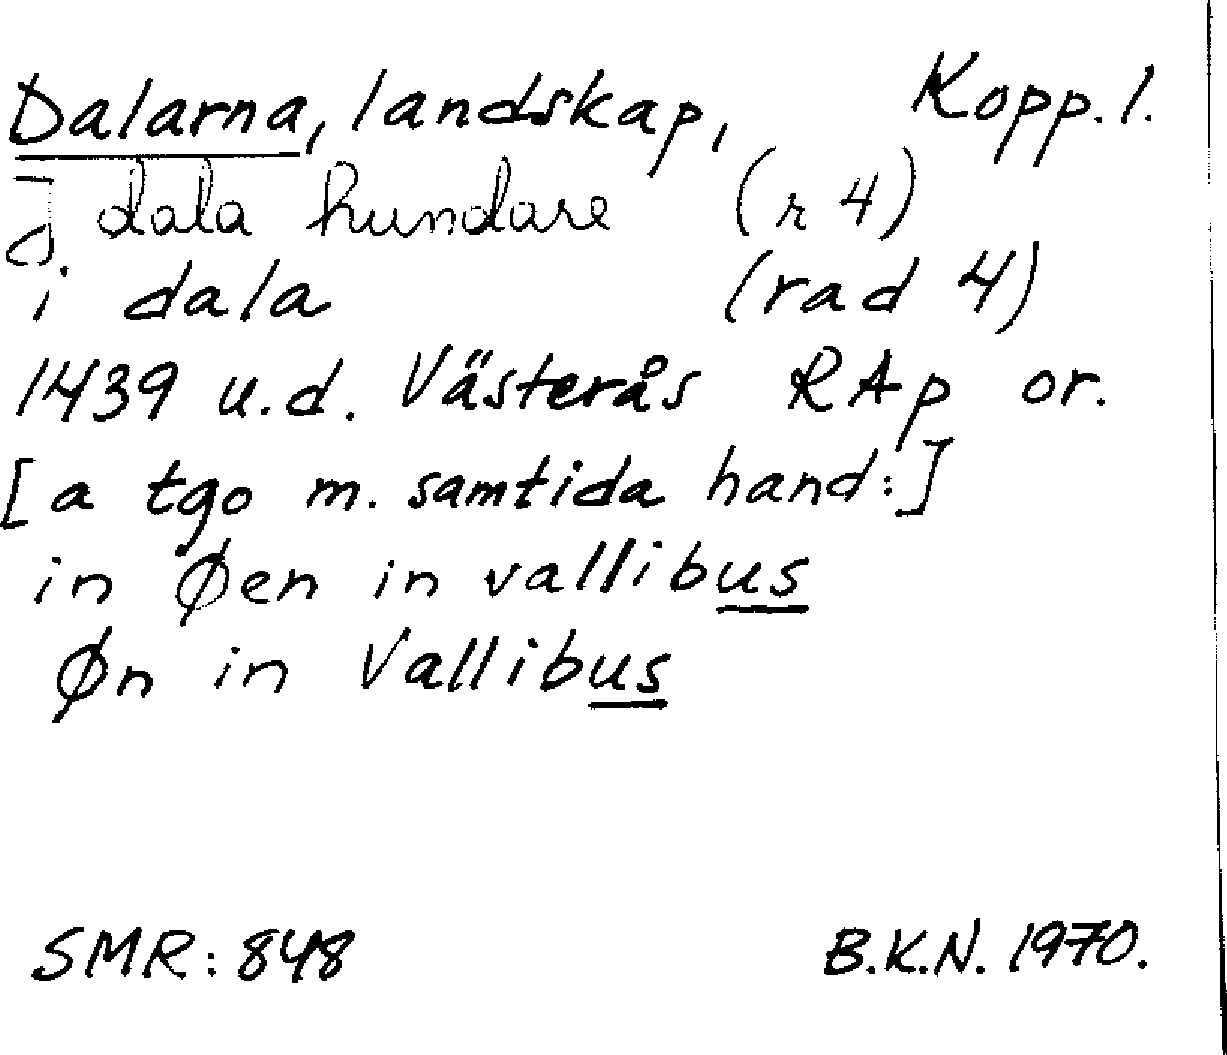 Dalarna, landskap, Kopp.l.
J dala hundare (r 4)
i dala (rad 4)
1439 u.d. Västerås RAp or.
[a tgo m. samtida hand:]
in Øen in vallibus
Øn in Vallibus
SMR: 848 B.K.N. 1970.